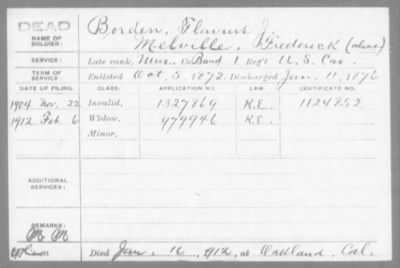 DEAD
NAME OF SOLDIER: Borden, Flavius J.
Melville, Frederick (alias).
SERVICE: Late rank, Mus. Band 1 Regt U.S. Cav.
TERM OF SERVICE: Enlisted Oct. 5, 1872, Discharged Jan. 11, 1876
DATE OF FILING. CLASS. APPLICATION NO. LAW. CERTIFICATE NO.
1904 Nov. 22 Invalid, 1327869 R.E. 1124252
1912 Feb. 6 Widow, 979946 R.E.
Minor,
ADDITIONAL SERVICES:
REMARKS:
Died Jan. 16, 1912, at Oakland, Cal.